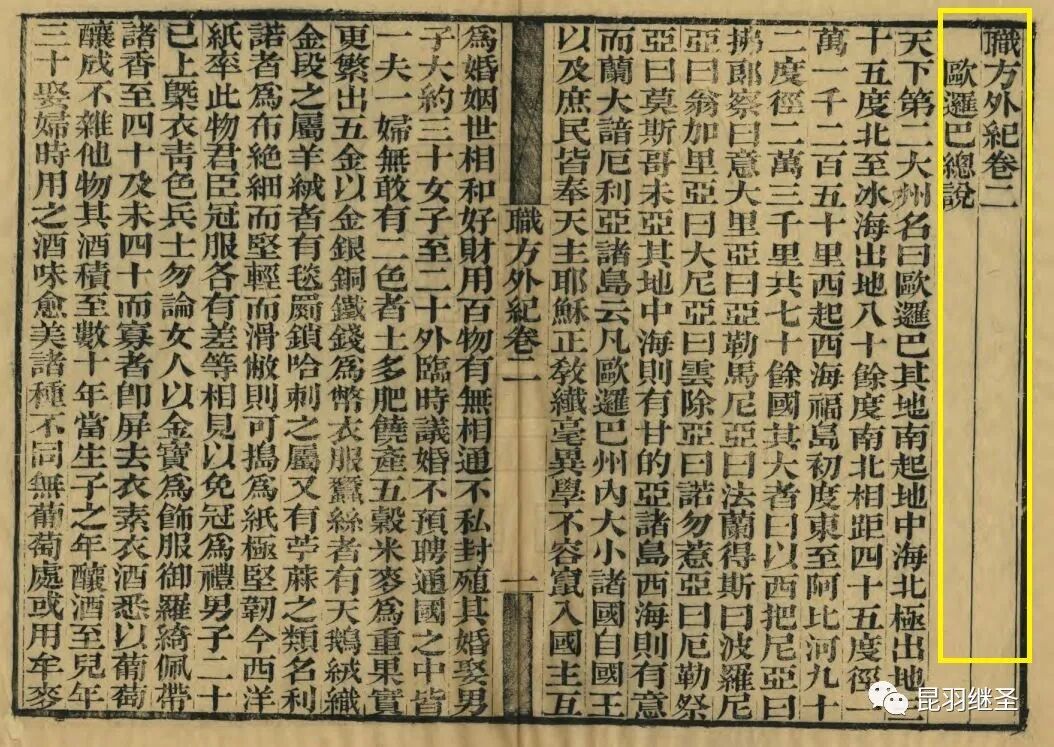 職方外紀卷二
歐邏巴總說
天下第二大州名曰歐邏巴其地南起地中海北極出地三
十五度北至冰海出地八十餘度南北相距四十五度徑一
萬一千二百五十里西起西海福島初度東至阿比河九十
二度徑二萬三千里共七十餘國其大者曰以西把尼亞曰
拂郎察曰意大里亞曰亞勒馬尼亞曰法蘭得斯曰波羅尼
亞曰翁加里亞曰大尼亞曰雲除亞曰諾勿惹亞曰厄勒祭
亞曰莫斯哥未亞其地中海則有甘的亞諸島西海則有意
而蘭大諳厄利亞諸島云凡歐邏巴州內大小諸國自國王
以及庶民皆奉天主耶穌正敎纖毫異學不容竄入國主互
職方外紀卷二
一
為婚姻世相和好財用百物有無相通不私封殖其婚娶男
子大約三十女子至二十外臨時議婚不預聘通國之中皆
一夫一婦無敢有二色者土多肥饒產五穀米麥為重果實
更繁出五金以金銀銅鐵錢為幣衣服蠶絲者有天鵝絨織
金段之屬羊絨者有毯罽鎖哈刺之屬又有苧蔴之類名利
諾者為布絕細而堅輕而滑敝則可搗為紙極堅韌今西洋
紙率此物君臣冠服各有差等相見以免冠為禮男子二十
已上槩衣青色兵士勿論女人以金寶為飾服御羅綺佩帶
諸香至四十及未四十而寡者卽屏去衣素衣酒悉以葡萄
釀成不雜他物其酒積至數十年當生子之年釀酒至兒年
三十娶婦時用之酒味愈美諸種不同無葡萄處或用牟麥
昆羽继圣